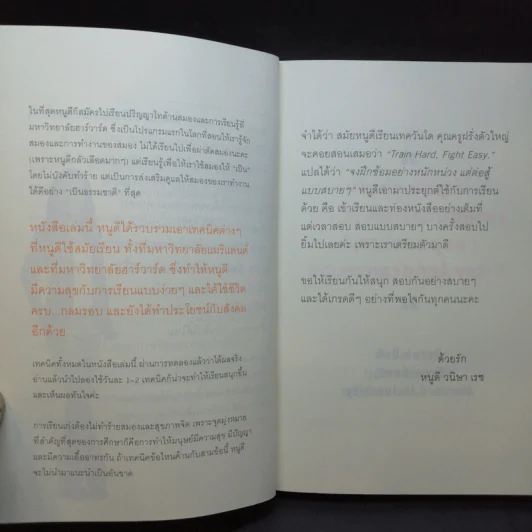 ในที่สุดหนูดีก็สมัครไปเรียนปริญญาโทด้านสมองและการเรียนรู้ที่
มหาวิทยาลัยฮาร์วาร์ด ซึ่งเป็นโปรแกรมแรกในโลกที่สอนให้เรารู้จัก
สมองและการทำงานของสมอง ไม่ได้เรียนไปเพื่อผ่าตัดสมองนะคะ
(เพราะหนูดีกลัวเลือดมากๆ) แต่เรียนรู้เพื่อให้เราใช้สมองให้ "เป็น"
โดยไม่บังคับทำร้าย แต่เป็นการส่งเสริมดูแลให้สมองของเราทำงาน
ได้ดีอย่าง "เป็นธรรมชาติ" ที่สุด
หนังสือเล่มนี้ หนูดีได้รวบรวมเอาเทคนิคต่างๆ
ที่หนูดีใช้สมัยเรียน ทั้งที่มหาวิทยาลัยแมริแลนด์
และที่มหาวิทยาลัยฮาร์วาร์ด ซึ่งทำให้หนูดี
มีความสุขกับการเรียนแบบง่ายๆ และได้ใช้ชีวิต
ครบ...กลมรอบ และยังได้ทำประโยชน์กับสังคม
อีกด้วย
เทคนิคทั้งหมดในหนังสือเล่มนี้ ผ่านการทดลองแล้วว่าได้ผลจริง
อ่านแล้วนำไปลองใช้วันละ 1-2 เทคนิคก็น่าจะทำให้เรียนสนุกขึ้น
และเห็นผลทันใจค่ะ
การเรียนเก่งต้องไม่ทำร้ายสมองและสุขภาพจิต เพราะจุดมุ่งหมาย
ที่สำคัญที่สุดของการศึกษาก็คือการทำให้มนุษย์มีความสุข มีปัญญา
และมีความเอื้ออาทรกัน ถ้าเทคนิคข้อไหนค้านกับสามข้อนี้ หนูดี
จะไม่นำมาแนะนำเป็นอันขาด
จำได้ว่า สมัยหนูดีเรียนเทควันโด คุณครูฝรั่งตัวใหญ่
จะคอยสอนเสมอว่า "Train Hard, Fight Easy."
แปลได้ว่า "จงฝึกซ้อมอย่างหนักหน่วง แต่ต่อสู้
แบบสบายๆ" หนูดีเอามาประยุกต์ใช้กับการเรียน
ด้วย คือ เข้าเรียนและท่องหนังสืออย่างเต็มที่
แต่เวลาสอบ สอบแบบสบายๆ บางครั้งสอบไป
ยิ้มไปเลยค่ะ เพราะเราเตรียมตัวมาดี
ขอให้เรียนกันให้สนุก สอบกันอย่างสบายๆ
และได้เกรดดีๆ อย่างที่พอใจกันทุกคนนะคะ
ด้วยรัก
หนูดี วนิษา เรซ